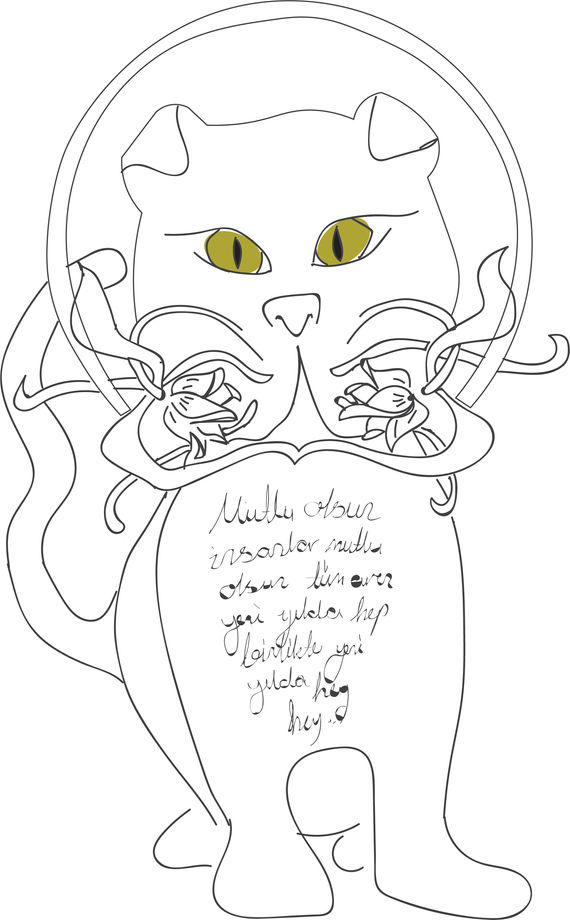 Mutlu olsun
insanlar mutlu
olsun tüm evren
yeni yılda hep
birlikte yeni
yılda hey
hey...